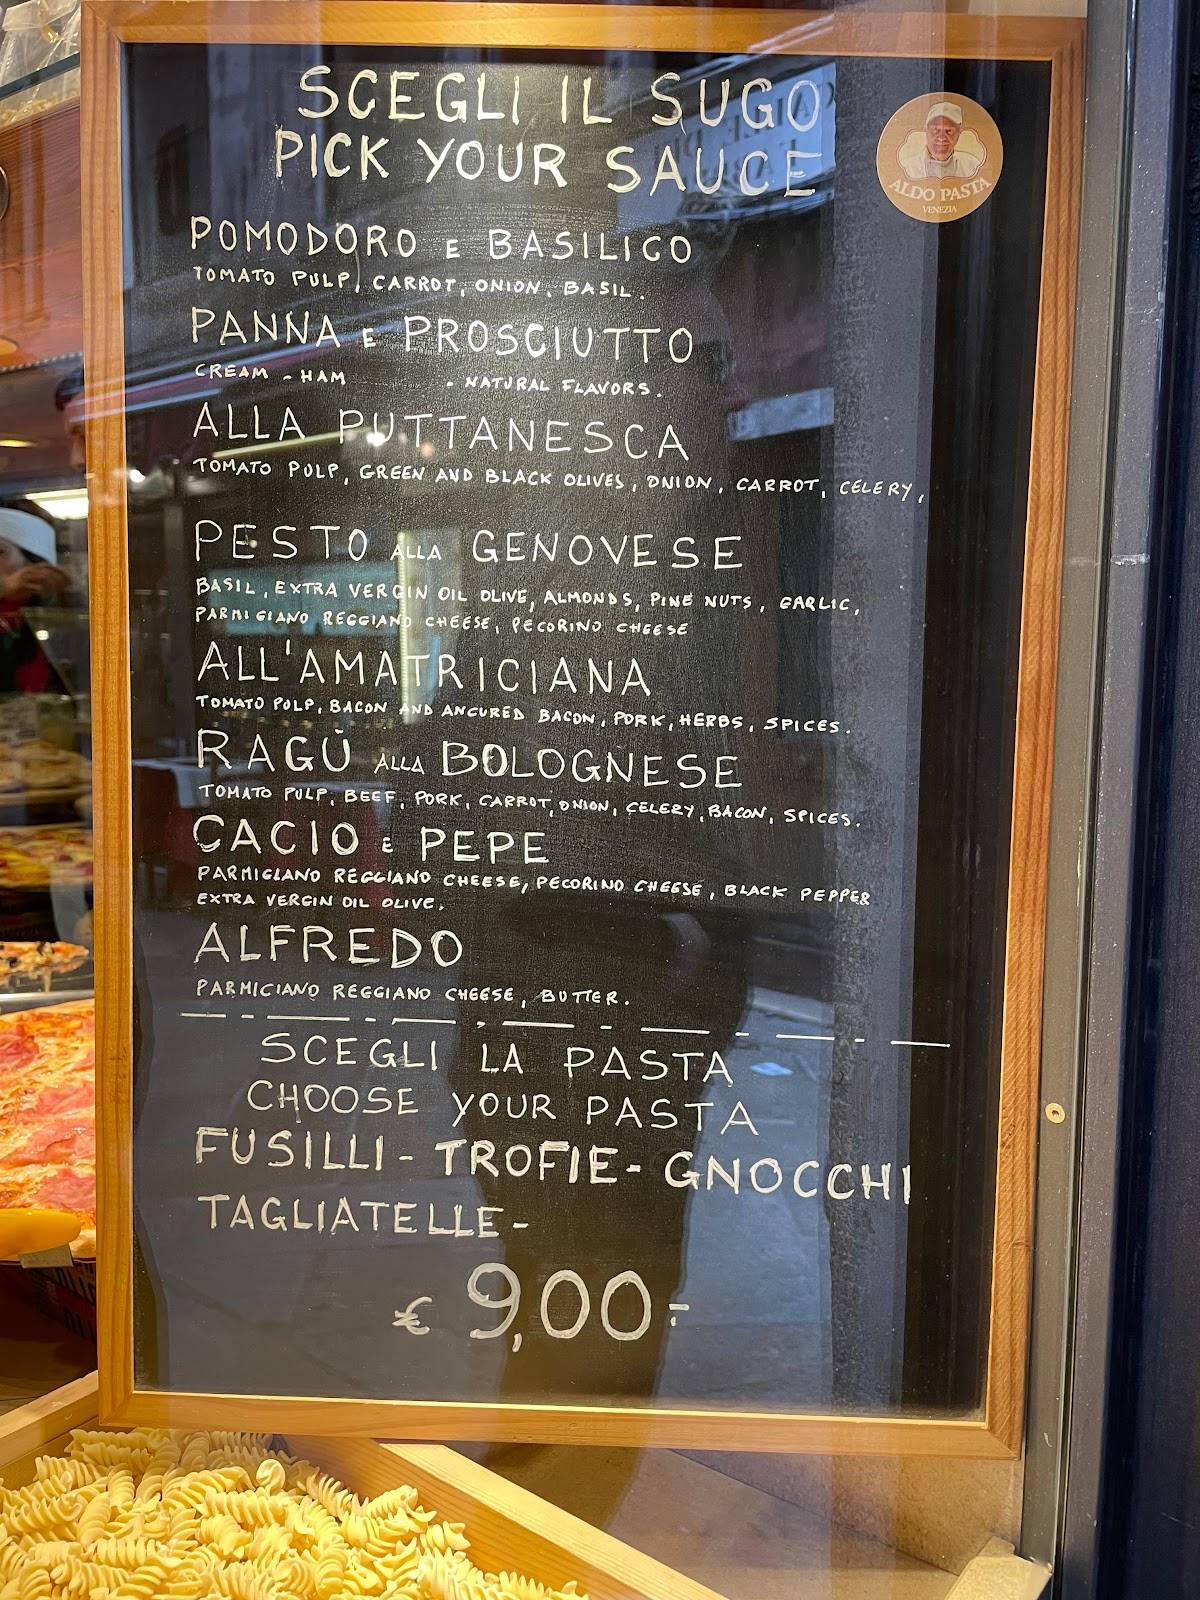 SCEGLI IL SUGO
PICK YOUR SAUCE
ALDO PASTA
VENEZIA
POMODORO E BASILICO
TOMATO PULP, CARROT, ONION, BASIL.
PANNA E PROSCIUTTO
CREAM - HAM - NATURAL FLAVORS.
ALLA PUTTANESCA
TOMATO PULP, GREEN AND BLACK OLIVES, ONION, CARROT, CELERY,
PESTO ALLA GENOVESE
BASIL, EXTRA VERGIN OIL OLIVE, ALMONDS, PINE NUTS, GARLIC,
PARMIGIANO REGGIANO CHEESE, PECORINO CHEESE
ALL'AMATRICIANA
TOMATO PULP, BACON AND ANCURED BACON, PORK, HERBS, SPICES.
RAGÙ ALLA BOLOGNESE
TOMATO PULP, BEEF, PORK, CARROT, ONION, CELERY, BACON, SPICES.
CACIO E PEPE
PARMIGIANO REGGIANO CHEESE, PECORINO CHEESE, BLACK PEPPER
EXTRA VERGIN OIL OLIVE.
ALFREDO
PARMICIANO REGGIANO CHEESE, BUTTER.
SCEGLI LA PASTA
CHOOSE YOUR PASTA
FUSILLI - TROFIE - GNOCCHI
TAGLIATELLE -
€ 9,00=